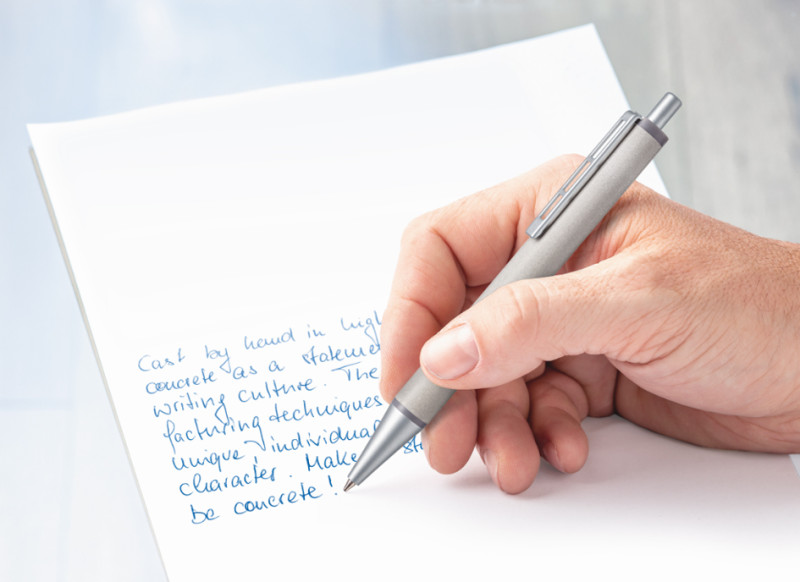 Cast by hand in high
concrete as a stateme
writing culture. The
facturing techniques
unique individual
character. Make st
be concrete!